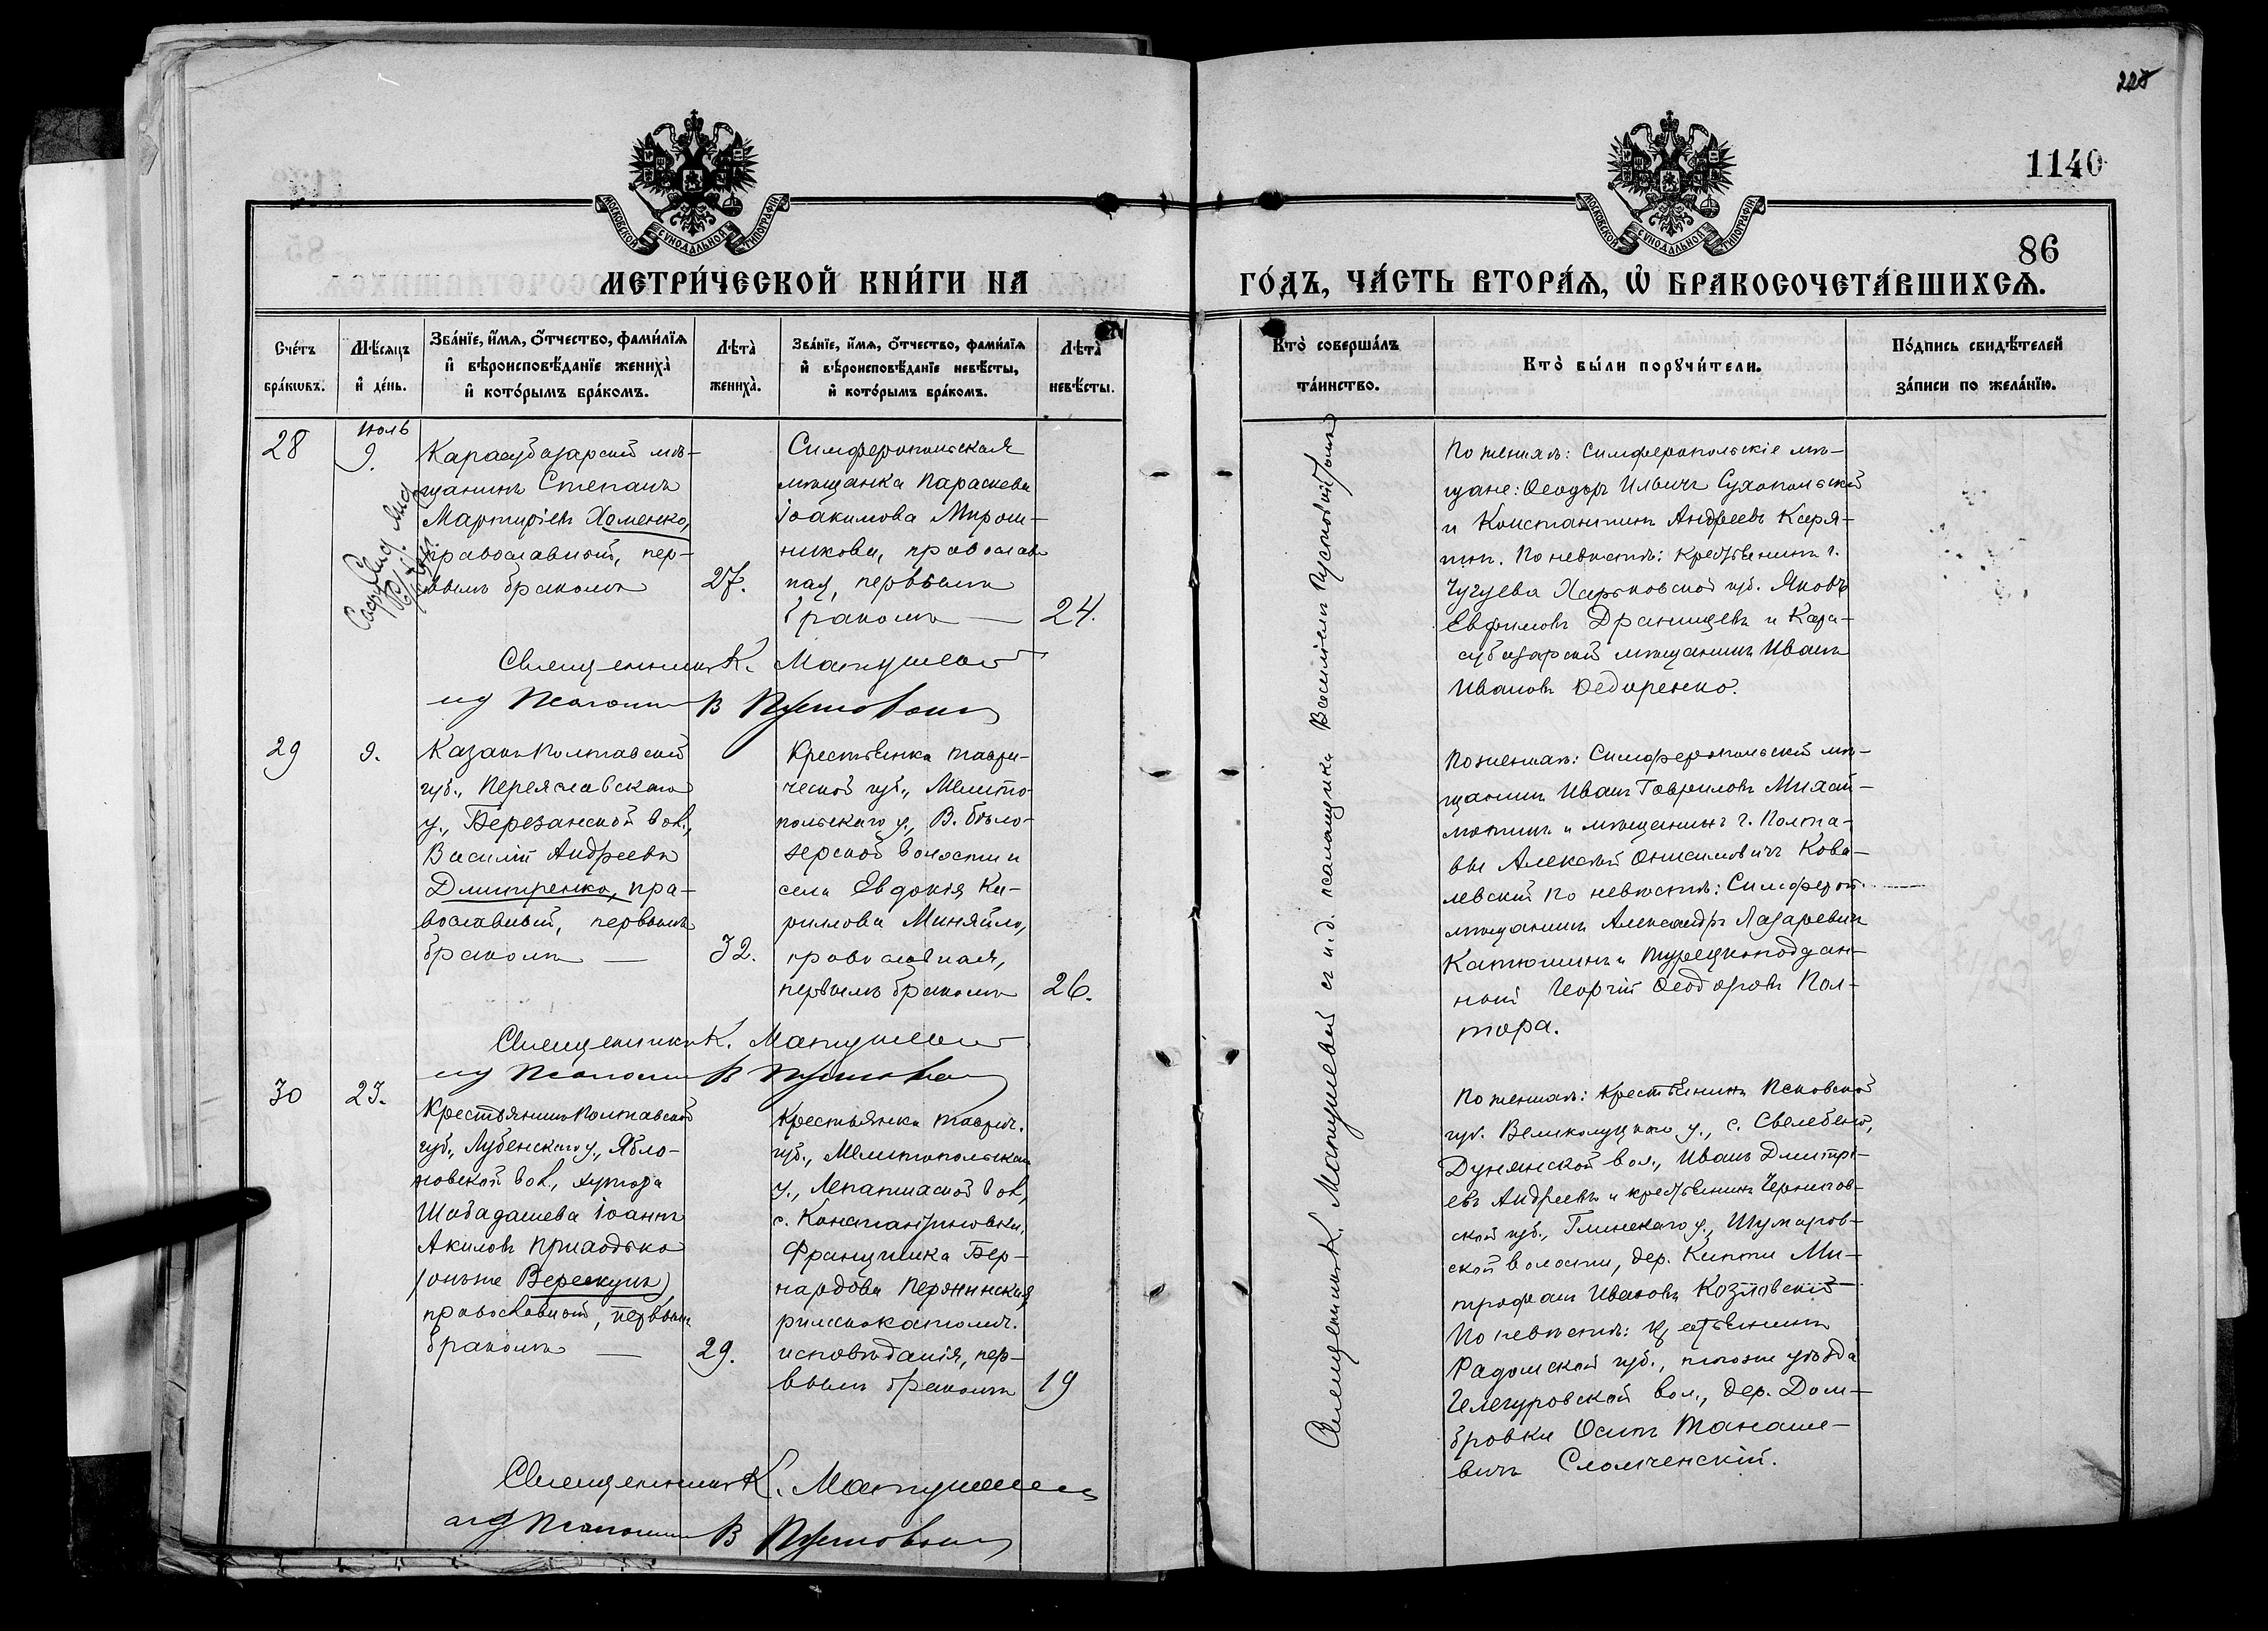 1140
86
МОСКОВСКОЙ СѴНОДАЛЬНОЙ ТИПОГРАФІИ
МОСКОВСКОЙ СѴНОДАЛЬНОЙ ТИПОГРАФІИ
МЕТРИ́ЧЕСКОЙ КНИ́ГИ НА
ГО́ДЪ, ЧА́СТЬ ВТОРА́Ѧ, Ѡ҆ БРАКОСОЧЕТА́ВШИХСѦ.
Сче́тъ бра́кѡвъ.
Мѣ́сяцъ и҆ де́нь.
Зва́нїе, и҆́мя, ѻ҆́тчество, фами́лїя и҆ вѣроисповѣ́данїе жениха̀ и҆ кото́рымъ бра́комъ.
Лѣ́та̀ жениха̀.
Зва́нїе, и҆́мя, ѻ҆́тчество, фами́лїя и҆ вѣроисповѣ́данїе невѣ́сты, и҆ кото́рымъ бра́комъ.
Лѣ́та̀ невѣ́сты.
Кто̀ соверша́лъ та́инство.
Кто̀ бы́ли порꙋчи́тели.
По́дпись свидѣ́телей за́писи по жела́нїю.
28
Июль
9.
Карасубазарскій мѣ-
щанинъ Степанъ
Мартиріевъ Хоменко,
православный, пер-
вымъ бракомъ
27.
Симферопольская
мѣщанка Параскева
Іоакимова Мирош-
никова, православ
ная, первымъ
бракомъ —
24.
Священникъ К. Матушевъ
ид Псаломщ В Пустовой
По женихѣ: Симферопольскіе мѣ-
щане: Ѳеодоръ Ильичъ Сухопольскій
и Константинъ Андреевъ Каря-
. По невѣстѣ: крестьянинъ г.
Чугуева Харьковской губ. Яковъ
Евфимовъ Дранищевъ и Кара-
субазарскій мѣщанинъ Иванъ
Ивановъ Ѳедоренко.
29
9.
Казакъ Полтавской
губ., Переяславскаго
у., Березанской вол.,
Василій Андреевъ
Дмитренко, пра-
вославный, первымъ
бракомъ —
32.
Крестьянка Таври-
ческой губ., Мелито-
польскаго у., В. Бѣло-
зерской волости и
села Евдокія Ки-
риллова Миняйло,
православная,
первымъ бракомъ
26.
Священникъ К. Матушевъ
ид Псаломщ В Пустовой
По женихѣ: Симферопольскій мѣ-
щанинъ Иванъ Гавриловъ Михай-
и мѣщанинъ г. Полта-
вы Алексѣй Онисимовичъ Кова-
левскій По невѣстѣ: Симфероп.
мѣщанинъ Александръ Лазаревичъ
Катюшинъ и Турецкоподдан-
ный Георгій Ѳеодоровъ Пол-
тора.
30
23.
Крестьянинъ Полтавской
губ., Лубенскаго у., Ябло-
новской вол., хутора
Шабадашева Іоаннъ
Акиловъ Приходько
(онъ же Верескунъ)
православный, первымъ
бракомъ —
29.
Крестьянка Таврич.
губ., Мелитопольскаго
у., Лепатиской вол,
с. Константиновки,
Францишка Бер-
нардова Пержинская,
римско католич.
исповѣданія, пер-
вымъ бракомъ
19
Священникъ К. Матушевъ
ид Псаломщ В Пустовой
По женихѣ: Крестьянинъ Псковской
губ. Великолуцкаго у., с.
Дунянской вол., Иванъ Дмитрі-
евъ Андреевъ и крестьянинъ Чернигов-
ской губ., Глинскаго у., Шумаров-
ской волости, дер. Кипти Ми-
трофанъ Ивановъ Козловскій —
По невѣстѣ: крестьянинъ
Радомской губ., того же уѣзда
вол., дер. Дом-
бровки Осипъ
вичъ Сломченскій.
Священникъ К. Матушевъ съ и. д. псаломщика Василіемъ Пустовойтомъ